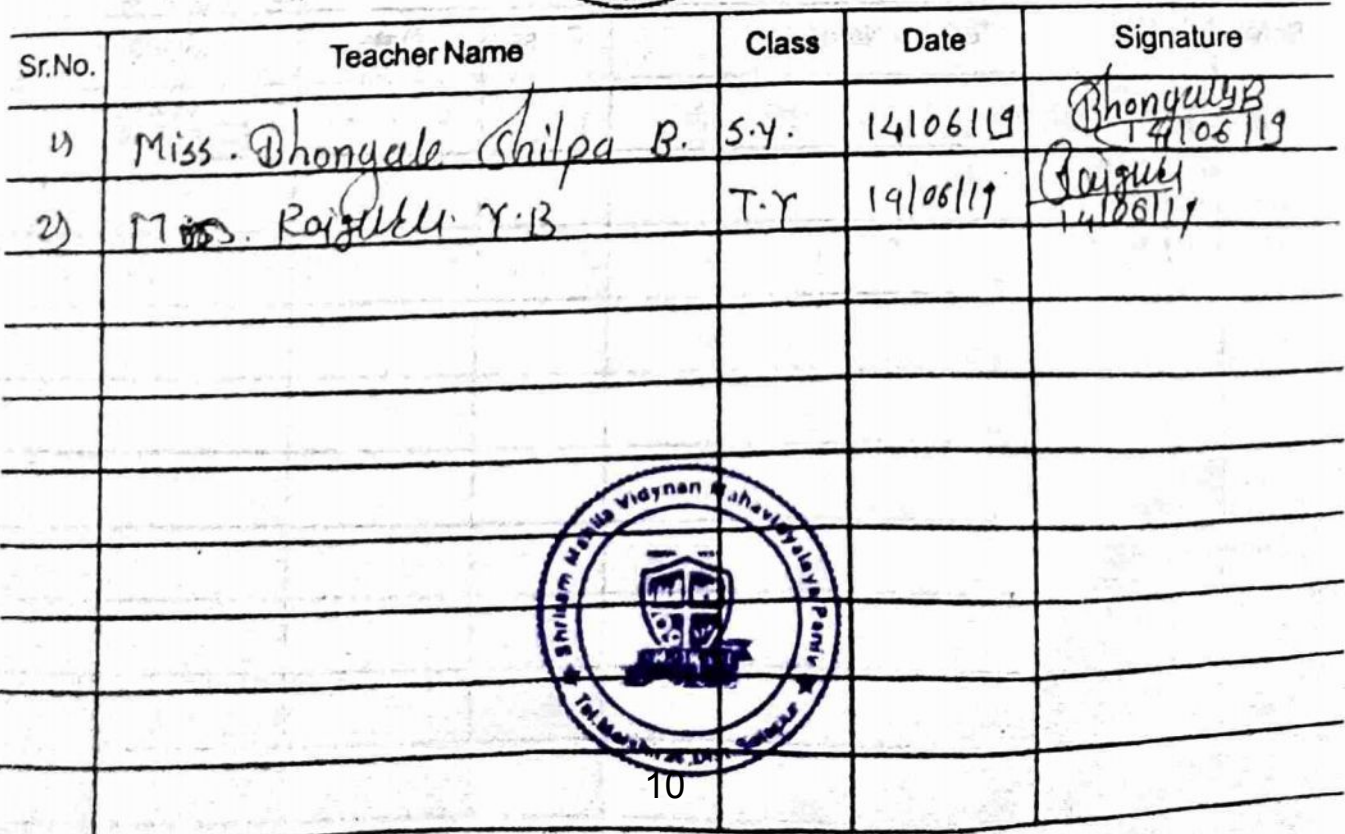 Sr.No. Teacher Name Class Date Signature
1) Miss. Bhongale Shilpa B. S.Y. 14/06/19 Bhongale
14/06/19
2) Miss. Rajguru Y.B T.Y 14/06/19 Rajguru
14/06/19
Shriram Mahila Vidynan Mahavidyalaya Paniv
Tal.Malshiras,Dist. Solapur
10